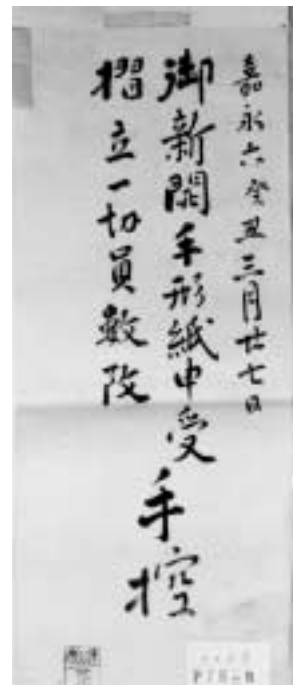 嘉永六癸丑三月廿七日
御新開手形紙申受
摺立一切員数改
手控